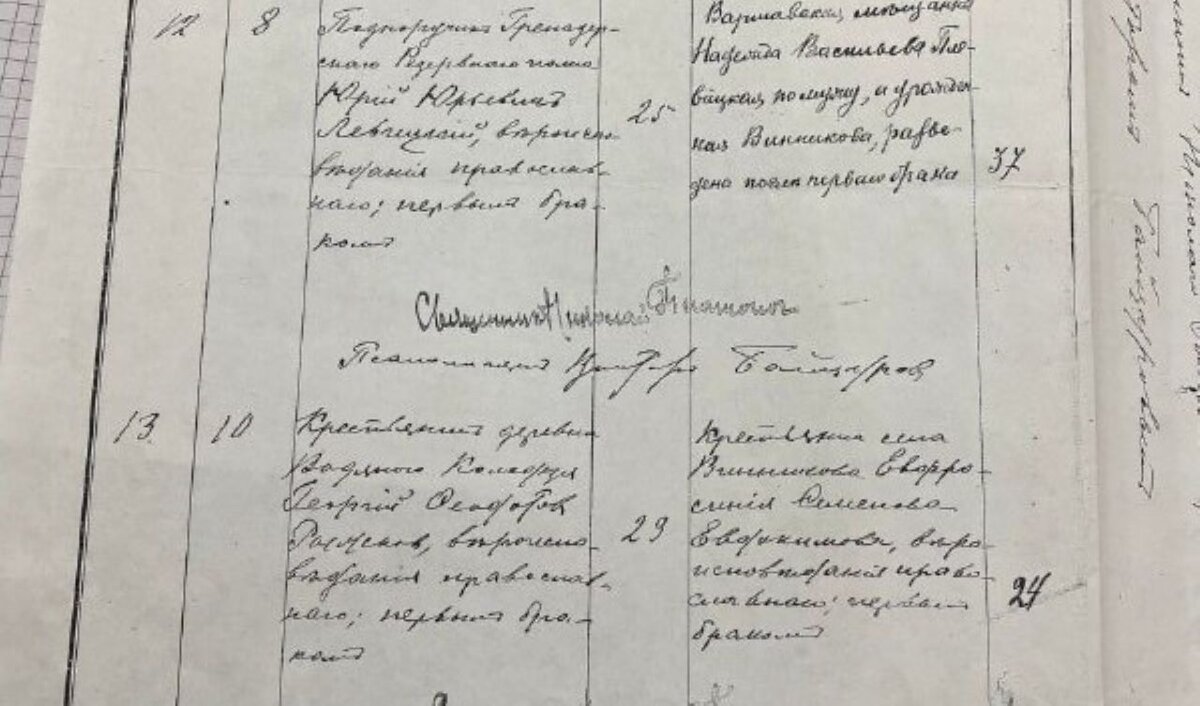 12 8 Подпоручикъ Гренадер-
скаго Резервнаго полка
Юрій Юрьевичъ
Левчицкій, вѣроиспо-
вѣданія православ-
наго; первымъ бра-
комъ
25
Варшавская мѣщанка
Надежда Васильева Пле-
вицкая по мужу, а урожден-
ная Винникова, разве-
дена послѣ перваго брака
37
Священникъ Николай
Псаломщикъ
13 10 Крестьянинъ деревни
Водяного Колодезя
Георгій Ѳеодотов
вѣроиспо-
вѣданія православ-
наго; первымъ бра-
комъ
29
Крестьянка села
Винникова Евфро-
синія Семенова
Евдокимова, вѣро-
исповѣданія право-
славнаго; первымъ
бракомъ
24